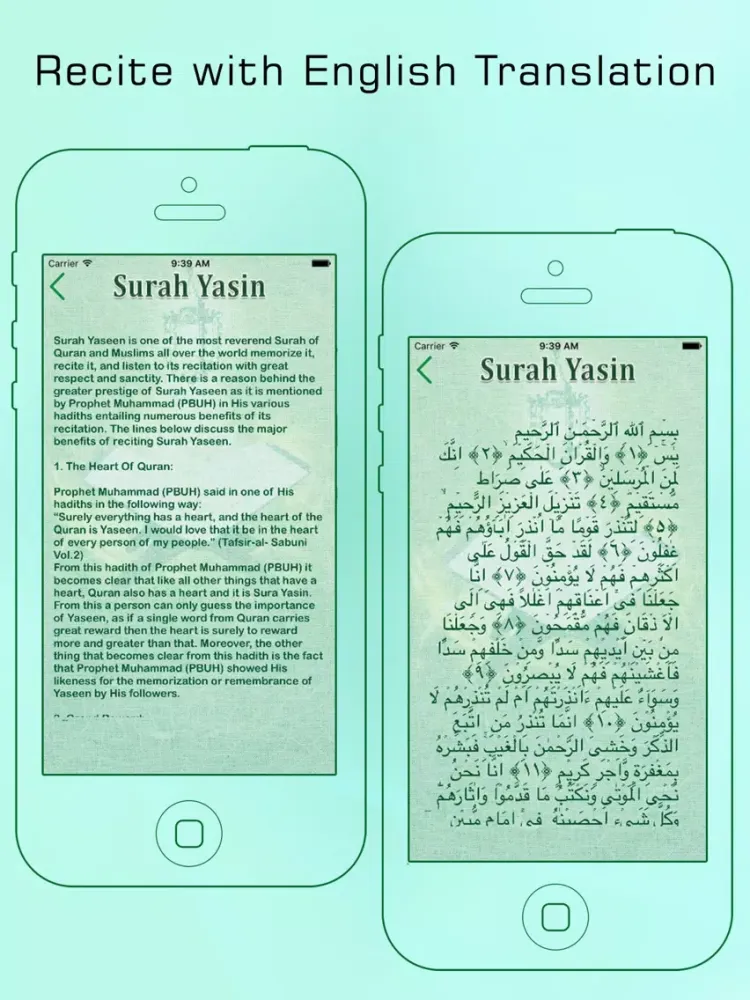 Recite with English Translation
Carrier 9:39 AM
Surah Yasin
Surah Yaseen is one of the most reverend Surah of
Quran and Muslims all over the world memorize it,
recite it, and listen to its recitation with great
respect and sanctity. There is a reason behind the
greater prestige of Surah Yaseen as it is mentioned
by Prophet Muhammad (PBUH) in His various
hadiths entailing numerous benefits of its
recitation. The lines below discuss the major
benefits of reciting Surah Yaseen.
1. The Heart Of Quran:
Prophet Muhammad (PBUH) said in one of His
hadiths in the following way:
"Surely everything has a heart, and the heart of the
Quran is Yaseen. I would love that it be in the heart
of every person of my people." (Tafsir-al- Sabuni
Vol.2)
From this hadith of Prophet Muhammad (PBUH) it
becomes clear that like all other things that have a
heart, Quran also has a heart and it is Sura Yasin.
From this a person can only guess the importance
of Yaseen, as if a single word from Quran carries
great reward then the heart is surely to reward
more and greater than that. Moreover, the other
thing that becomes clear from this hadith is the fact
that Prophet Muhammad (PBUH) showed His
likeness for the memorization or remembrance of
Yaseen by His followers.
Carrier 9:39 AM
Surah Yasin
بِسْمِ اللّٰهِ الرَّحْمٰنِ الرَّحِيْمِ
يٰسٓ ﴿١﴾ وَالْقُرْاٰنِ الْحَكِيْمِ ﴿٢﴾ اِنَّكَ
لَمِنَ الْمُرْسَلِيْنَ ﴿٣﴾ عَلٰى صِرَاطٍ
مُّسْتَقِيْمٍ ﴿٤﴾ تَنْزِيْلَ الْعَزِيْزِ الرَّحِيْمِ
﴿٥﴾ لِتُنْذِرَ قَوْمًا مَّا اُنْذِرَ اٰبَآؤُهُمْ فَهُمْ
غٰفِلُوْنَ ﴿٦﴾ لَقَدْ حَقَّ الْقَوْلُ عَلٰٓى
اَكْثَرِهِمْ فَهُمْ لَا يُؤْمِنُوْنَ ﴿٧﴾ اِنَّا
جَعَلْنَا فِىْٓ اَعْنَاقِهِمْ اَغْلٰلًا فَهِىَ اِلَى
الْاَذْقَانِ فَهُمْ مُّقْمَحُوْنَ ﴿٨﴾ وَجَعَلْنَا
مِنْۢ بَيْنِ اَيْدِيْهِمْ سَدًّا وَّمِنْ خَلْفِهِمْ سَدًّا
فَاَغْشَيْنٰهُمْ فَهُمْ لَا يُبْصِرُوْنَ ﴿٩﴾
وَسَوَآءٌ عَلَيْهِمْ ءَاَنْذَرْتَهُمْ اَمْ لَمْ تُنْذِرْهُمْ لَا
يُؤْمِنُوْنَ ﴿١٠﴾ اِنَّمَا تُنْذِرُ مَنِ اتَّبَعَ
الذِّكْرَ وَخَشِىَ الرَّحْمٰنَ بِالْغَيْبِ فَبَشِّرْهُ
بِمَغْفِرَةٍ وَّاَجْرٍ كَرِيْمٍ ﴿١١﴾ اِنَّا نَحْنُ
نُحْىِ الْمَوْتٰى وَنَكْتُبُ مَا قَدَّمُوْا وَاٰثَارَهُمْ
وَكُلَّ شَىْءٍ اَحْصَيْنٰهُ فِىْٓ اِمَامٍ مُّبِيْنٍ